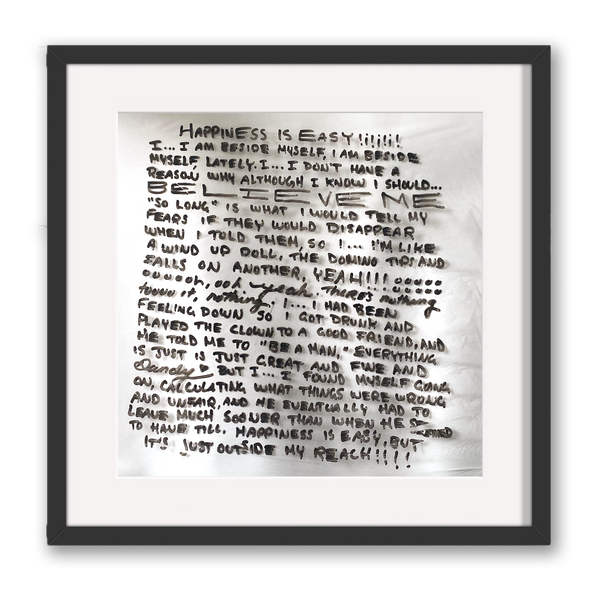 HAPPINESS IS EASY !i!i!i!
I... I AM BESIDE MYSELF, I AM BESIDE
MYSELF, LATELY. I... I DON'T HAVE A
REASON WHY ALTHOUGH I KNOW I SHOULD...
BELIEVE ME
"SO LONG" IS WHAT I WOULD TELL MY
FEARS IF THEY WOULD DISAPPEAR
WHEN I TOLD THEM, SO I... I'M LIKE
A WIND UP DOLL, THE DOMINO TIPS AND
FALLS ON ANOTHER, YEAH!!!! ooooo
oooooh, ooh yeah. There's nothing
to it, nothing. I... I HAD BEEN
FEELING DOWN SO I GOT DRUNK AND
PLAYED THE CLOWN TO A GOOD FRIEND, AND
HE TOLD ME TO "BE A MAN," EVERYTHING
IS JUST IS JUST GREAT AND FINE AND
Dandy ♥ BUT I... I FOUND MYSELF GOING
ON, CALCULATING WHAT THINGS WERE WRONG
AND UNFAIR, AND HE EVENTUALLY HAD TO
LEAVE MUCH SOONER THAN WHEN HE
TO HAVE TILL. HAPPINESS IS EASY, BUT
IT'S JUST OUTSIDE MY REACH!!!!